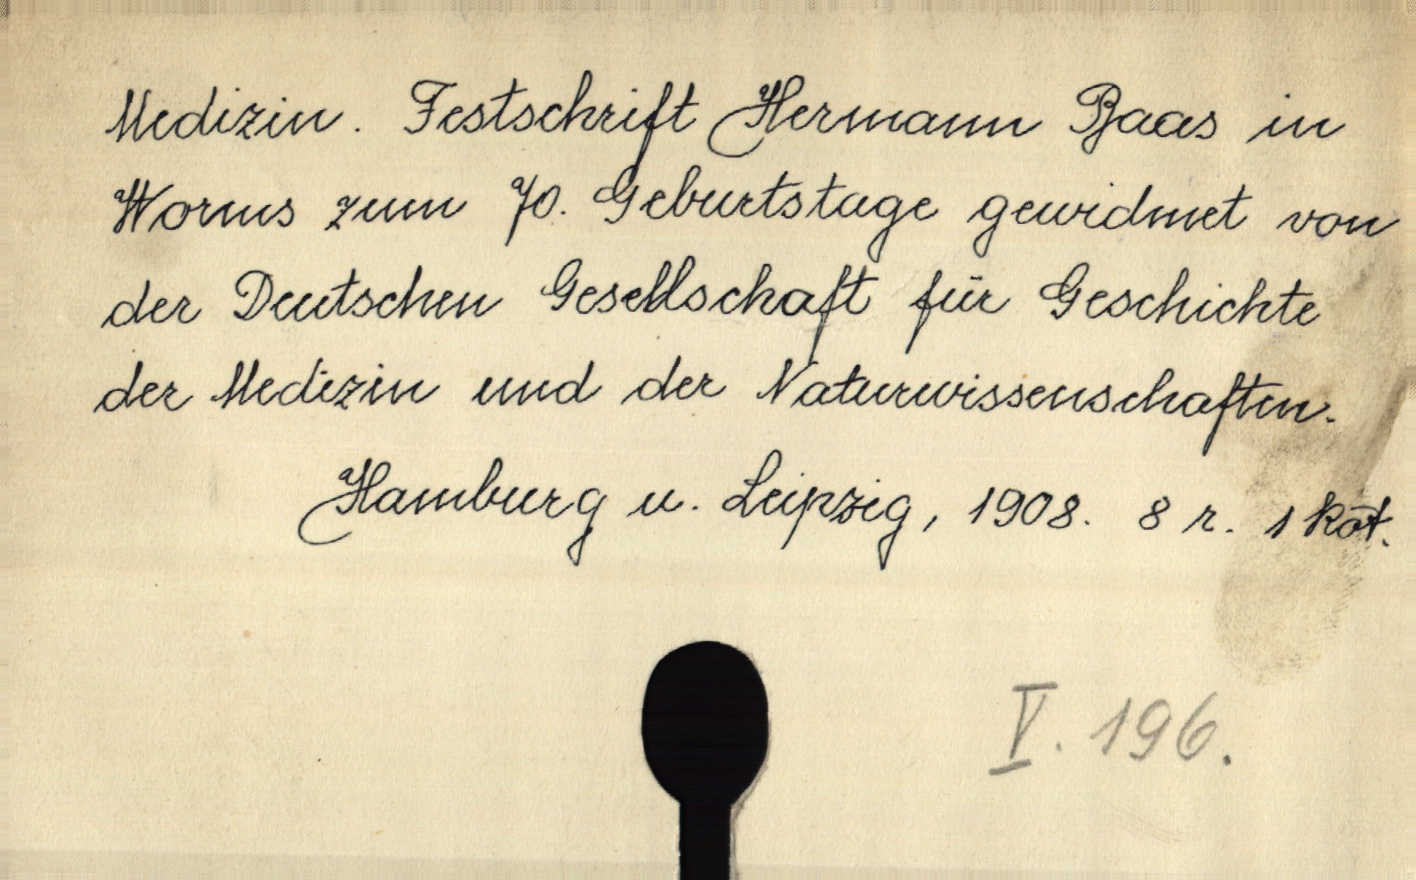 Medizin. Festschrift Hermann Baas in
Worms zum 70. Geburtstage gewidmet von
der Deutschen Gesellschaft für Geschichte
der Medizin und der Naturwissenschaften.
Hamburg u. Leipzig, 1908. 8 r. 1 köt.
V. 196.